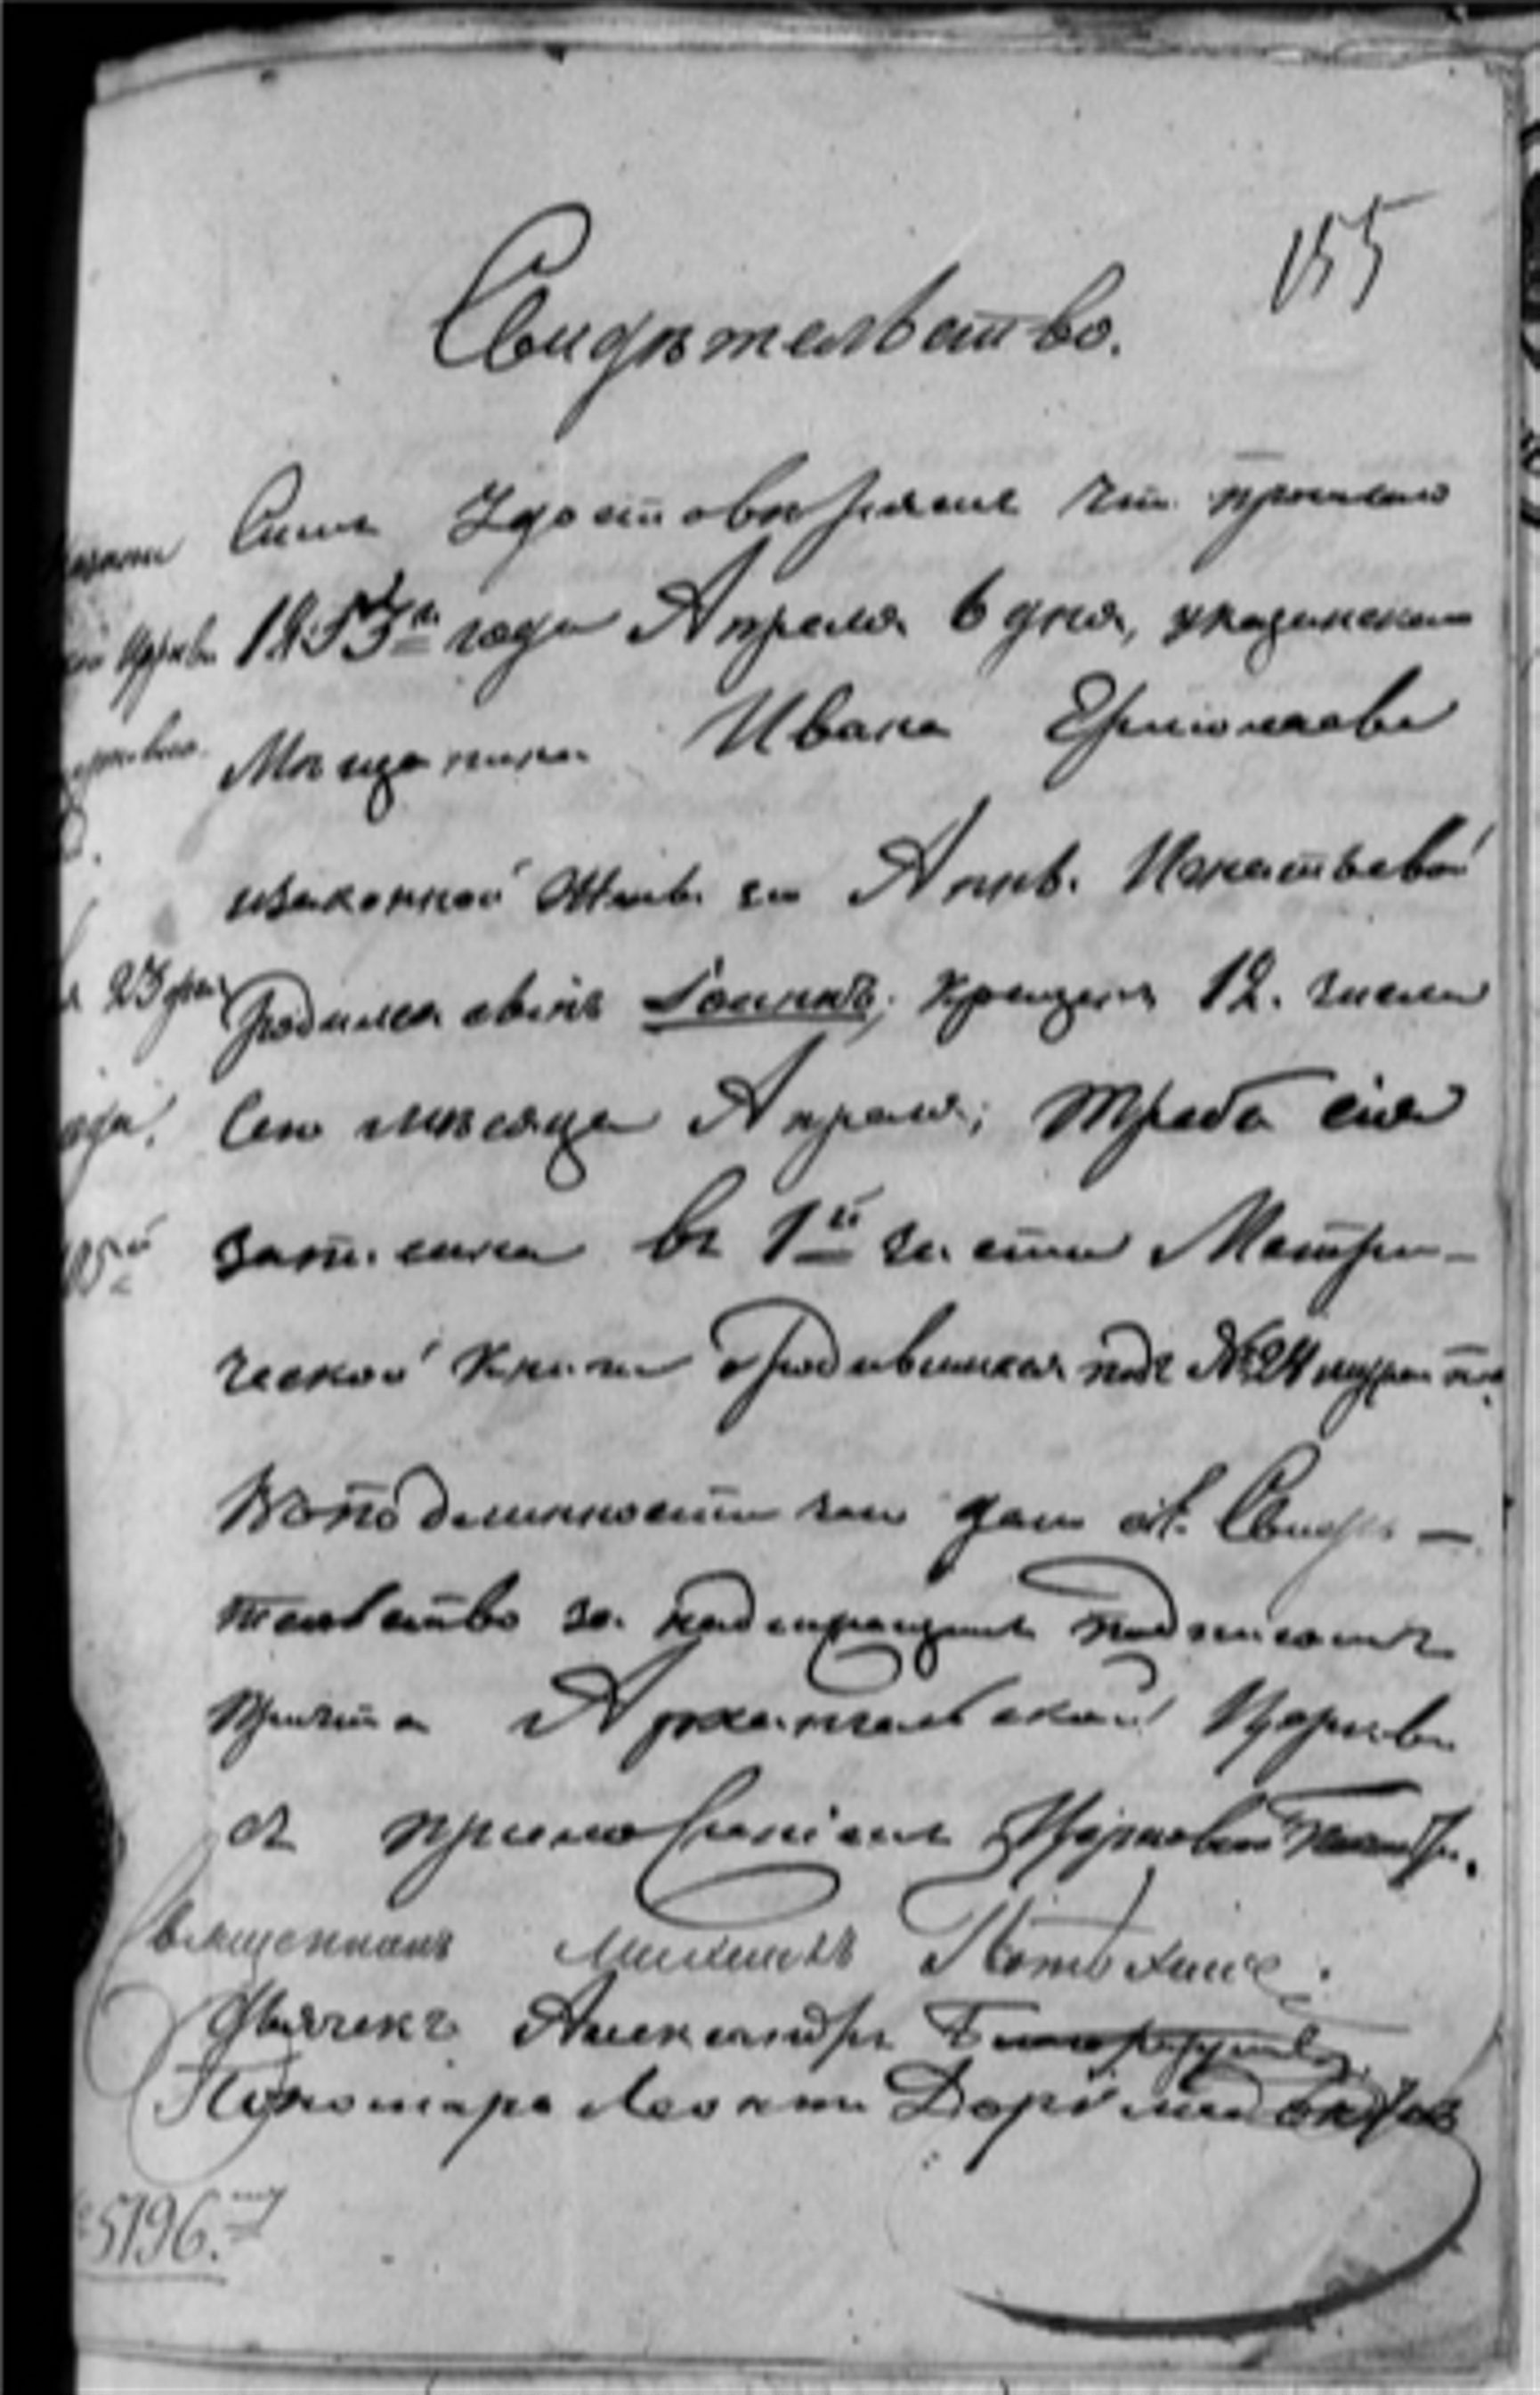 155
Свидѣтельство.
Симъ Удостовѣряемъ что прошлаго
1853го года Апреля 6 дня, у казанскаго
Мѣщанина Ивана Ермолаева
изаконной жены его Анны Игнатьевой
родился сынъ Іоаннъ, крещенъ 12. числа
Сего мѣсяца Апреля; треба сія
записана въ 1й части Метри-
ческой Книги о родившихся подъ №24 муж. пола.
Вподлинности чего дано сіе Свидѣ-
тельство за надлежащимъ подписомъ
причта Архангельской Церкви
съ приложеніемъ Церковной Печати.
Священникъ Михаилъ
Дьячекъ Александръ
Пономарь Леонтій
5196.